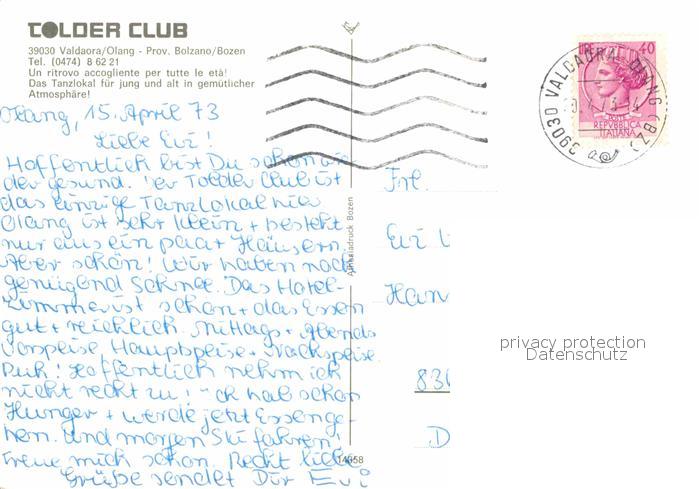 TOLDER CLUB
39030 Valdaora/Olang - Prov. Bolzano/Bozen
Tel. (0474) 8 62 21
Un ritrovo accogliente per tutte le età!
Das Tanzlokal für jung und alt in gemütlicher
Atmosphäre!
Olang, 15. April 73
Liebe Evi!
Hoffentlich bist Du schon wie-
der gesund. Der Tolder Club ist
das einzige Tanzlokal hier
Olang ist sehr klein + besteht
nur aus ein paar Häusern.
Aber schön! Wir haben noch
genügend Schnee. Das Hotel-
zimmer ist schön + das Essen
gut + reichlich. Mittags + Abends
Vorspeise Hauptspeise + Nachspeise
Puh! Hoffentlich nehm ich
nicht recht zu! Ich hab schon
Hunger + werde jetzt Essenge-
hen. Und morgen Ski fahren!
Freue mich schon. Recht liebe
Grüße sendet Dir Evi
Athesiadruck Bozen
14658
LIRE 40
POSTE
REPVBBLICA
ITALIANA
39030 VALDAORA OLANG (BZ)
Frl.
Evi
Han
830
D
privacy protection
Datenschutz